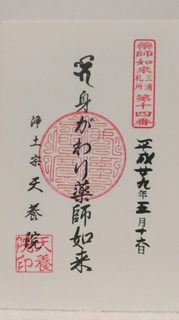 薬師如来 三浦札所 第十四番
平成廿九年五月十六日
身がわり薬師如来
浄土宗 天養院
天養院印